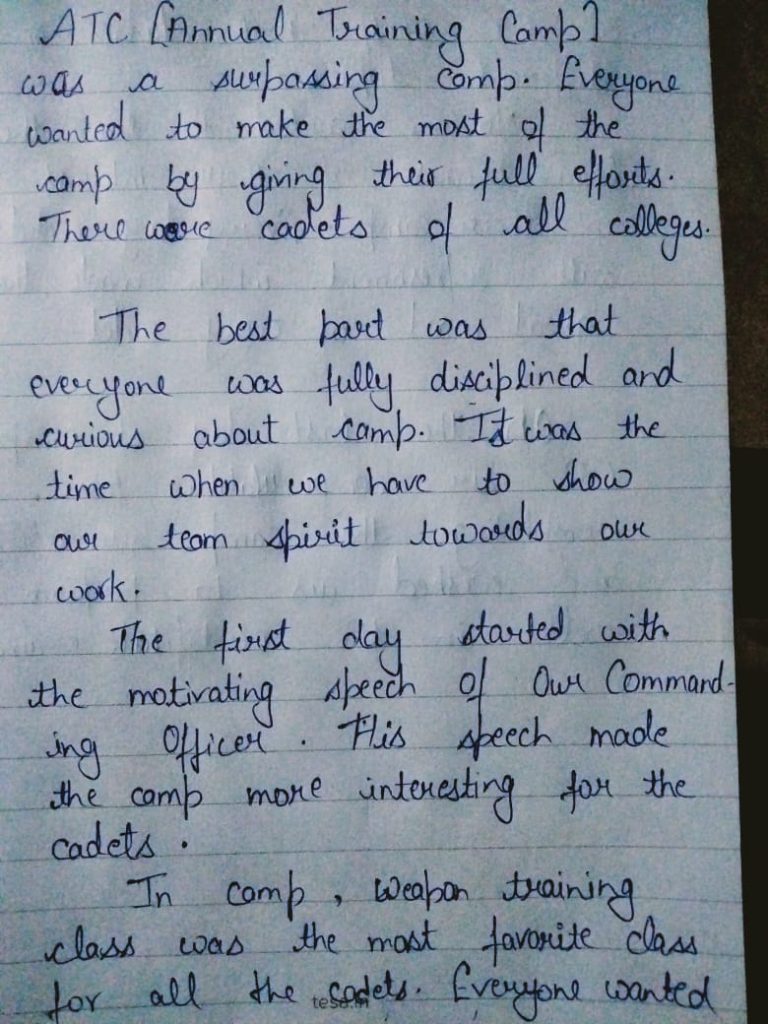 ATC [Annual Training Camp]
was a surpassing camp. Everyone
wanted to make the most of the
camp by giving their full efforts.
There were cadets of all colleges.
The best part was that
everyone was fully disciplined and
curious about camp. It was the
time when we have to show
our team spirit towards our
work.
The first day started with
the motivating speech of Our Command-
ing Officer. His speech made
the camp more interesting for the
cadets.
In camp, weapon training
class was the most favorite class
for all the cadets. Everyone wanted